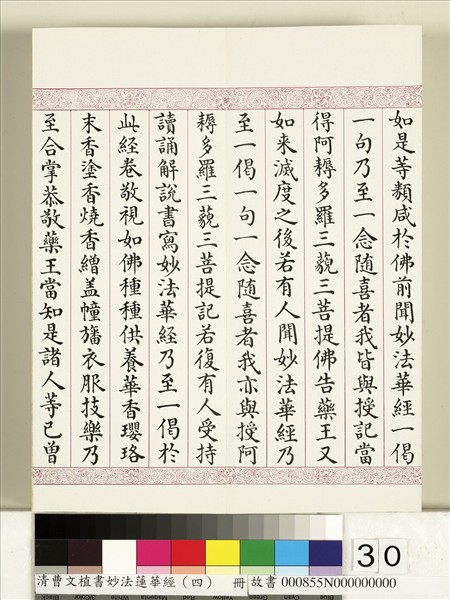 如是等類咸於佛前聞妙法華經一偈
一句乃至一念隨喜者我皆與授記當
得阿耨多羅三藐三菩提佛告藥王又
如来滅度之後若有人聞妙法華經乃
至一偈一句一念隨喜者我亦與授阿
耨多羅三藐三菩提記若復有人受持
讀誦解說書寫妙法華經乃至一偈於
此經卷敬視如佛種種供養華香瓔珞
末香塗香燒香繒盖幢旛衣服技樂乃
至合掌恭敬藥王當知是諸人等已曾
30
清曹文植書妙法蓮華經（四） 冊 故書 000855N000000000